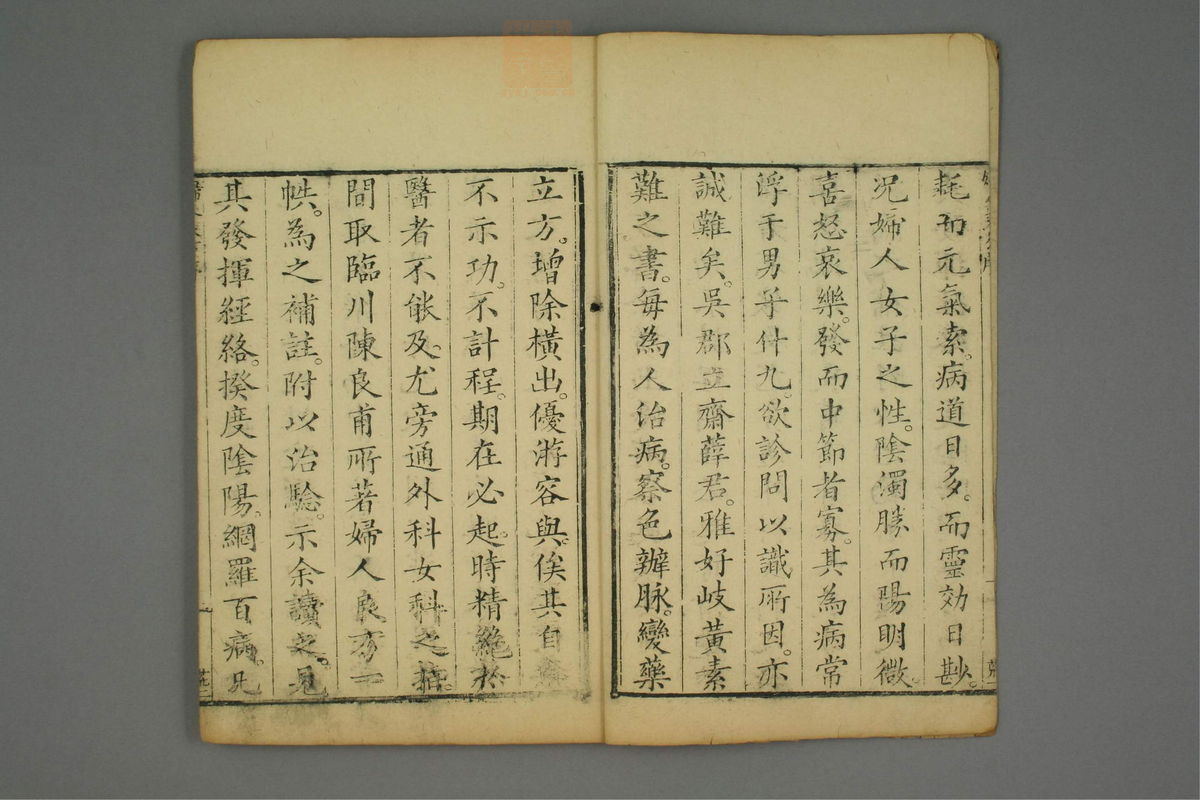 耗而元氣索。病道日多。而靈効日尠。
况婦人女子之性。陰濁勝而陽明微。
喜怒哀樂。發而中節者寡。其為病常
浮于男子什九。欲診問以識所因。亦
誠難矣。吳郡立齋薛君。雅好岐黃素
難之書。每為人治病。察色辦脉。變藥
立方。增除橫出。優游容與。俟其自
不示功。不計程。期在必起。時精絶於
醫者不能及。尤旁通外科女科之
間取臨川陳良甫所著婦人良方一
帙。為之補註。附以治驗。示余讀之。見
其發揮經絡。揆度陰陽。網羅百病。凡